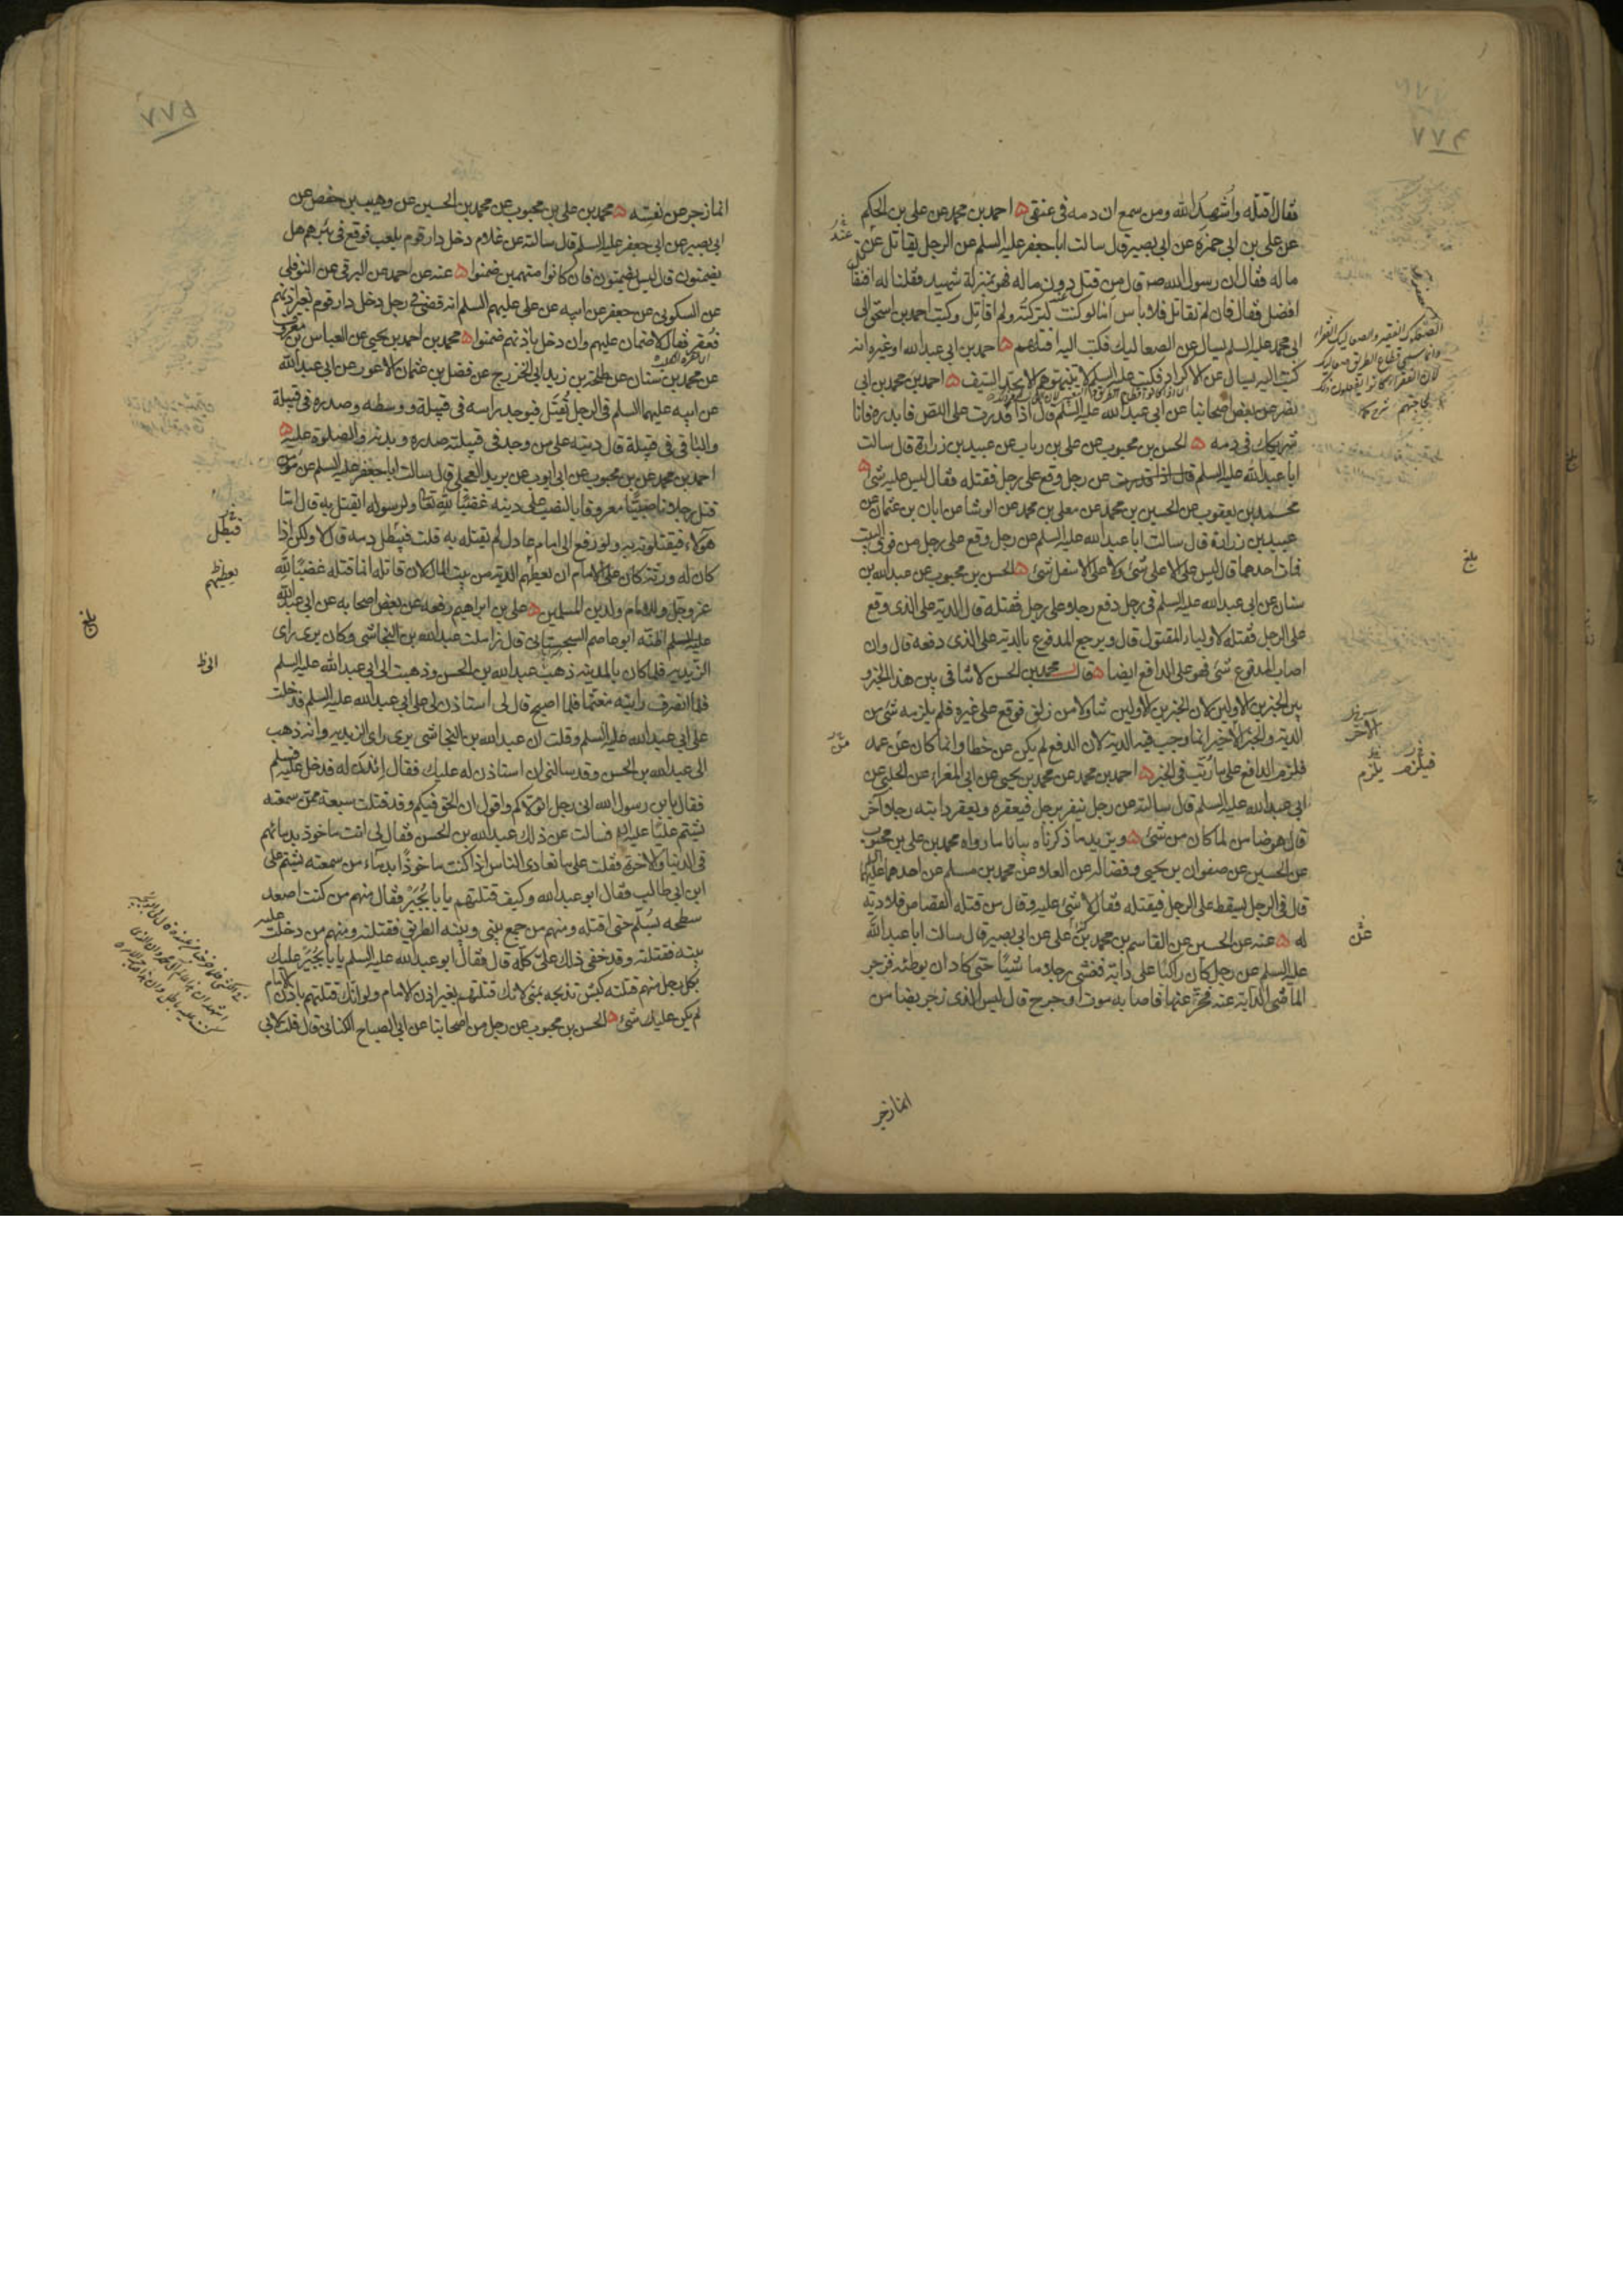 ٧٧٤
فقال اقتله واشهد الله ومن سمع ان دمه في عنقي ه احمد بن محمد عن علي بن الحكم
عن علي بن ابي حمزة عن ابي بصير قال سالت ابا جعفر عليه السلم عن الرجل يقاتل عن
ماله فقال ان رسول الله صه قال من قتل دون ماله فهو بمنزلة شهيد فقلنا له افنقاتل
افضل فقال فان لم نقاتل فلا باس اما لو كنت لتركته ولم اقاتل وكتب احمد بن اسحق الى
ابي محمد عليه السلم يسال عن الصعاليك فكتب اليه اقتلهم ه احمد بن ابي عبد الله او غيره انه
كتب اليه يسال عن الاكراد فكتب عليه السلم لا تنبهوهم الا بحد السيف ه احمد بن محمد بن ابي
نصر عن بعض اصحابنا عن ابي عبد الله عليه السلم قال اذا قدرت على اللص فابدره فانا
شريكك في دمه ه الحسن بن محبوب عن علي بن رباب عن عبيد بن زرارة قال سالت
ابا عبد الله عليه السلم عن رجل وقع على رجل فقتله فقال ليس عليه شئ ه
محمد بن يعقوب عن الحسين بن محمد عن معلى بن محمد عن الوشا عن ابان بن عثمان عن
عبيد بن زرارة قال سالت ابا عبد الله عليه السلم عن رجل وقع على رجل من فوق البيت
فمات احدهما قال ليس على الاعلى شئ ولا على الاسفل شئ ه الحسن بن محبوب عن عبد الله بن
سنان عن ابي عبد الله عليه السلم في رجل دفع رجلا على رجل فقتله قال الدية على الذي وقع
على الرجل فقتله لاولياء المقتول قال ويرجع المدفوع بالدية على الذي دفعه قال وان
اصاب المدفوع شئ فهو على الدافع ايضا ه قال محمد بن الحسن لا تنافي بين هذا الخبر و
بين الخبرين الاولين لان الخبرين الاولين تناولا من زلق فوقع على غيره فلم يلزمه شئ من
الدية والخبر الاخير انما وجب فيه الدية لان الدفع لم يكن عن خطا وانما كان عن عمد
فلزم الدافع على ما رتب في الخبر ه احمد بن محمد عن محمد بن يحيى عن ابي المغراء عن الحلبي عن
ابي عبد الله عليه السلم قال سالته عن رجل ينفر برجل فيعقره ويعقر دابته رجلا آخر
قال هو ضامن لما كان من شئ ه ويزيد ما ذكرناه بيانا ما رواه محمد بن علي بن محبوب
عن الحسين عن صفوان بن يحيى وفضالة عن العلاء عن محمد بن مسلم عن احدهما عليهما السلم
قال في الرجل يسقط على الرجل فيقتله فقال لا شئ عليه وقال من قتله القصاص فلا دية
له ه عنه عن الحسين عن القاسم بن محمد عن علي عن ابي بصير قال سالت ابا عبد الله
عليه السلم عن رجل كان راكبا على دابة فغشى رجلا ماشيا حتى كاد ان يوطئه فزجر
الماشي الدابة عنه فخر عنها فاصابه موت او جرح قال ليس الذي زجر بضامن
انما زجر
عنه
من
بلغ
الآخر
فيلزم
يلزم
عن
٧٧٥
انما زجر عن نفسه ه محمد بن علي بن محبوب عن محمد بن الحسين عن وهيب بن حفص عن
ابي بصير عن ابي جعفر عليه السلم قال سالته عن غلام دخل دار قوم يلعب فوقع في بئرهم هل
يضمنون قال ليس يضمنون فان كانوا متهمين ضمنوا ه عنه عن احمد عن البرقي عن النوفلي
عن السكوني عن جعفر عن ابيه عن علي عليهم السلم انه قضى في رجل دخل دار قوم بغير اذنهم
فعقر فقال لا ضمان عليهم وان دخل باذنهم ضمنوا ه محمد بن احمد بن يحيى عن العباس بن معروف
عن محمد بن سنان عن طلحة بن زيد ابي الخزرج عن فضل بن عثمان الاعور عن ابي عبد الله
عن ابيه عليهما السلم في الرجل يقتل فيوجد راسه في قبيلة ووسطه وصدره في قبيلة
والباقي في قبيلة قال ديته على من وجد في قبيلته صدره وبدنه والصلوة عليه ه
احمد بن محمد عن بن محبوب عن ابي ايوب عن بريد العجلي قال سالت ابا جعفر عليه السلم عن مؤمن
قتل رجلا ناصبيا معروفا بالنصب على دينه غضبا لله تعالى ولرسوله ايقتل به قال اما
هؤلاء فيقتلونه به ولو رفع الى امام عادل لم يقتله به قلت فيبطل دمه قال لا ولكن اذا
كان له ورثة كان على الامام ان يعطيهم الدية من بيت المال لان قاتله انما قتله غضبا لله
عز وجل وللامام ولدين المسلمين ه علي بن ابراهيم رفعه عن بعض اصحابه عن ابي عبد الله
عليه السلم اظنه ابو عاصم السجستاني قال زاملت عبد الله بن النجاشي وكان يرى راى
الزيدية فلما كان بالمدينة ذهب عبد الله بن الحسن وذهبت الى ابي عبد الله عليه السلم
فلما انصرف رايته مغتما فلما اصبح قال لي استاذن لي على ابي عبد الله عليه السلم فدخلت
على ابي عبد الله عليه السلم وقلت ان عبد الله بن النجاشي يرى راى الزيدية وانه ذهب
الى عبد الله بن الحسن وقد سالني ان استاذن له عليك فقال ائذن له فدخل عليه فسلم
فقال يا بن رسول الله اني رجل اتولاكم واقول ان الحق فيكم وقد قتلت سبعة ممن سمعته
يشتم عليا عليه السلم فسالت عن ذلك عبد الله بن الحسن فقال لي انت ماخوذ بدمائهم
في الدنيا والآخرة فقلت على ما نعادي الناس اذا كنت ماخوذا بدماء من سمعته يشتم علي
ابن ابي طالب فقال ابو عبد الله وكيف قتلتهم يابا بجير فقال منهم من كنت اصعد
سطحه بسلم حتى اقتله ومنهم من جمع بيني وبينه الطريق فقتلته ومنهم من دخلت عليه
بيته فقتلته وقد خفي ذلك علي كله قال فقال ابو عبد الله عليه السلم يابا بجير عليك
بكل رجل منهم قتلته كبش تذبحه بمنى لانك قتلتهم بغير اذن الامام ولو انك قتلتهم باذن الامام
لم يكن عليك شئ ه الحسن بن محبوب عن رجل من اصحابنا عن ابي الصباح الكناني قال قلت لابي
فيبطل
يعطيهم
الى
بلغ